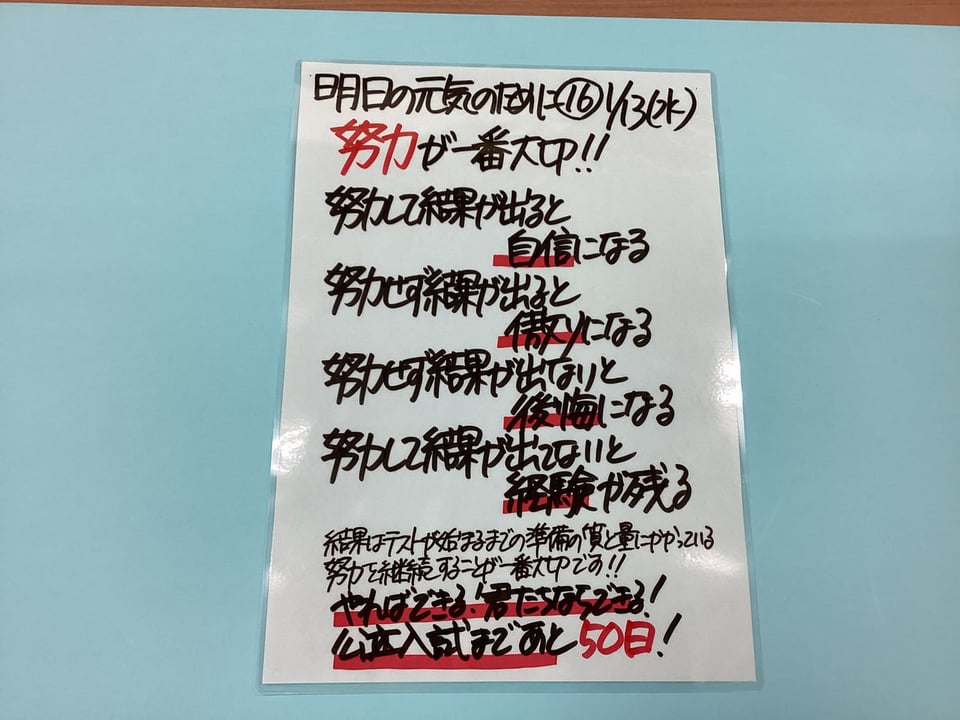 明日の元気のために⑯ 1/13(水)
努力が一番大切!!
努力して結果が出ると
自信になる
努力せず結果が出ると
傲りになる
努力せず結果が出ないと
後悔になる
努力して結果が出てないと
経験が残る
結果はテストが始まるまでの準備の質と量にかかっている
努力を継続することが一番大切です!!
やればできる!君たちならできる!
公立入試まであと50日!